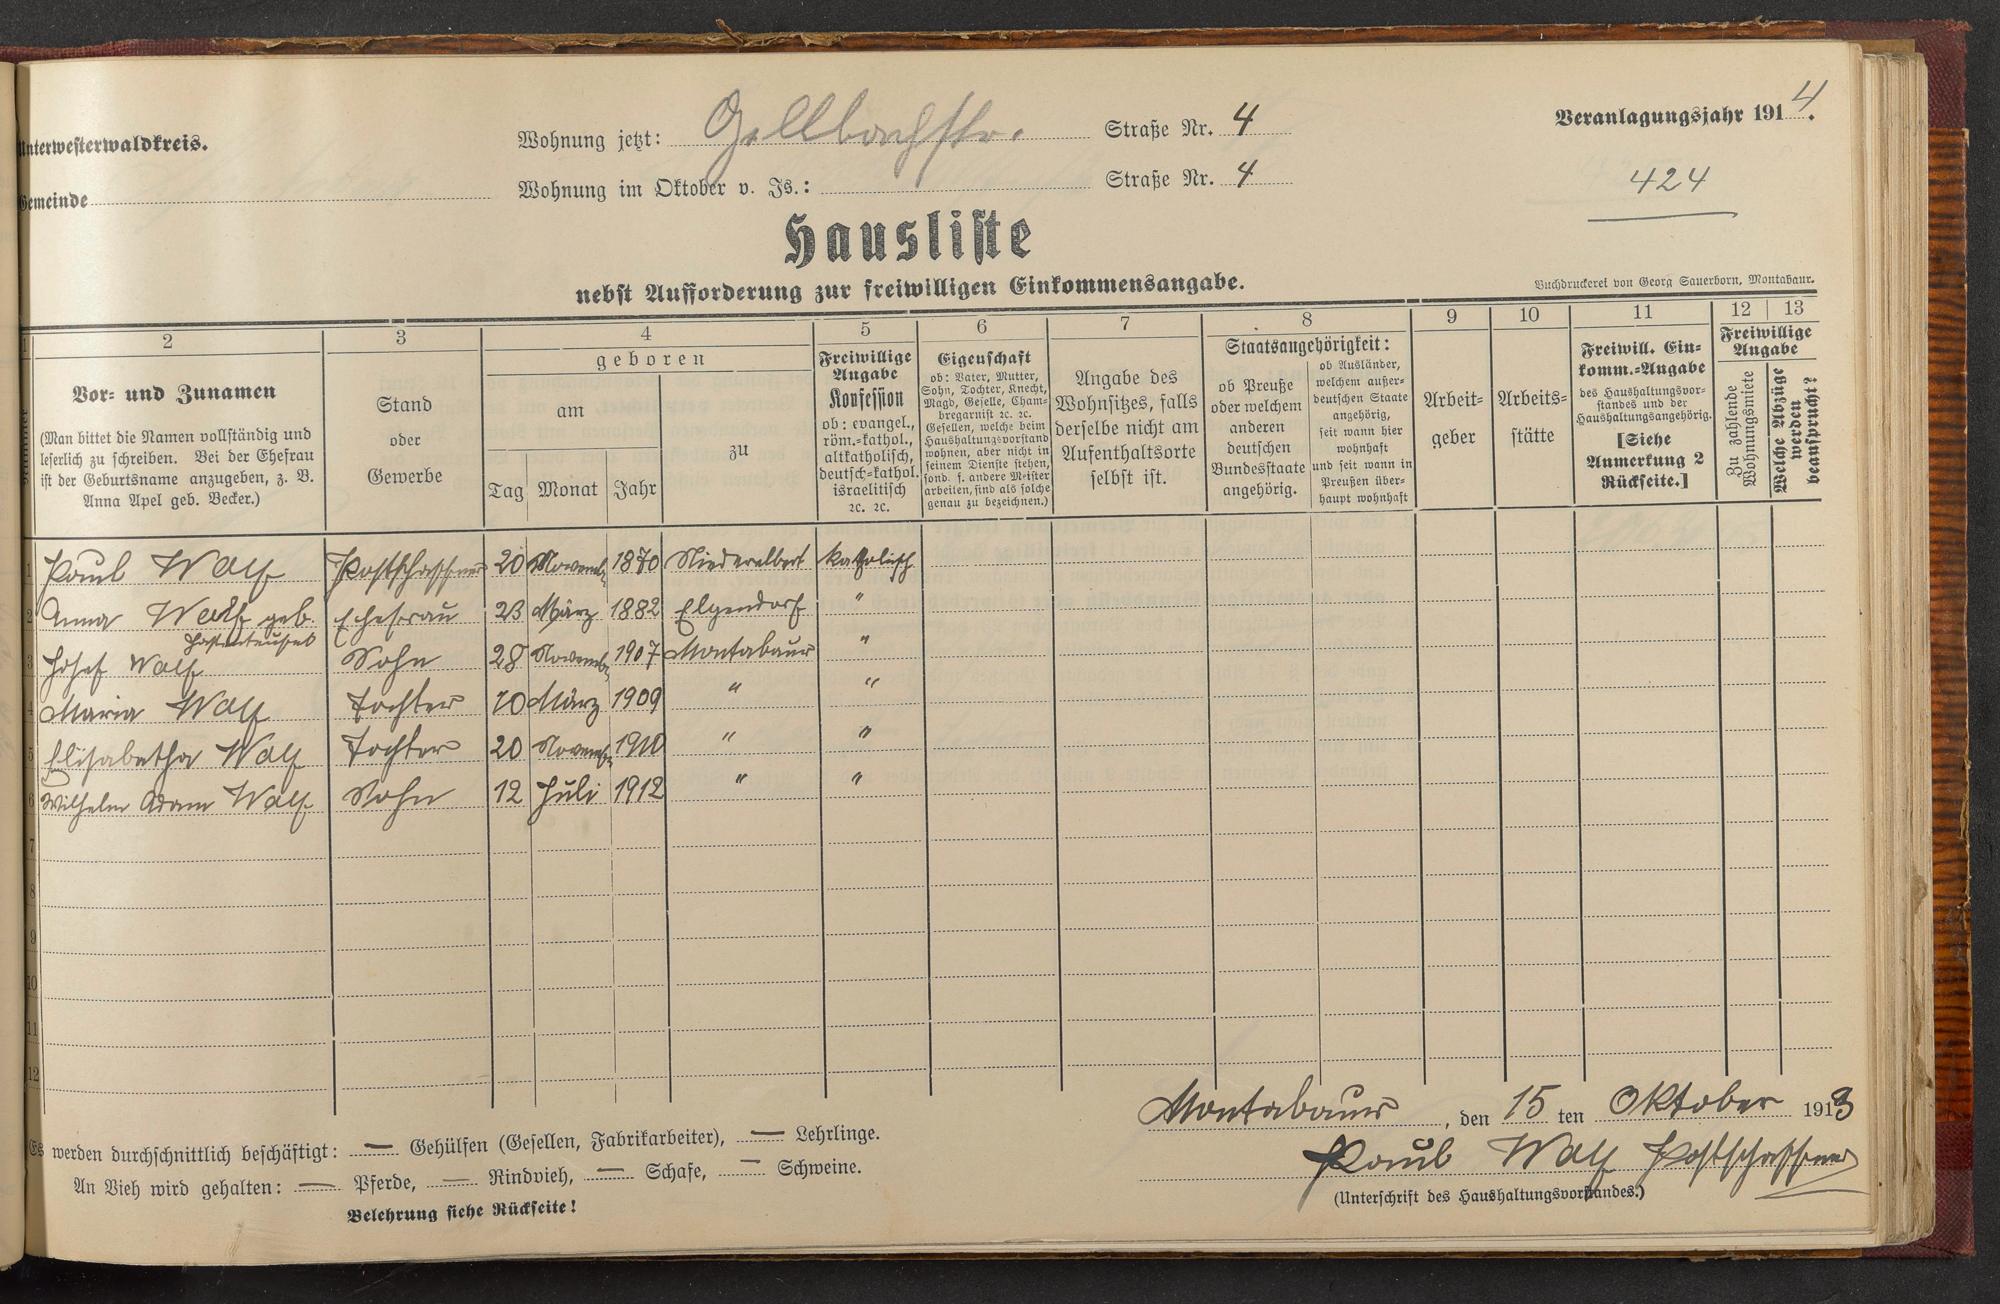 Unterwesterwaldkreis.
Wohnung jetzt: Gellbachstr. Straße Nr. 4
Veranlagungsjahr 1914.
Gemeinde
Wohnung im Oktober v. Js.: Straße Nr. 4
424
Hausliste
nebst Aufforderung zur freiwilligen Einkommensangabe.
Buchdruckerei von Georg Sauerborn, Montabaur.
2 3 4 5 6 7 8 9 10 11 12 13
Vor- und Zunamen
(Man bittet die Namen vollständig und
leserlich zu schreiben. Bei der Ehefrau
ist der Geburtsname anzugeben, z. B.
Anna Apel geb. Becker.)
Stand
oder
Gewerbe
geboren
am
zu
Tag Monat Jahr
Freiwillige
Angabe
Konfession
ob: evangel.,
röm.-kathol.,
altkatholisch,
deutsch-kathol.
israelitisch
ꝛc. ꝛc.
Eigenschaft
ob: Vater, Mutter,
Sohn, Tochter, Knecht,
Magd, Geselle, Cham-
bregarnist ꝛc. ꝛc.
Gesellen, welche beim
Haushaltungsvorstand
wohnen, aber nicht in
seinem Dienste stehen,
sond. f. andere Meister
arbeiten, sind als solche
genau zu bezeichnen.)
Angabe des
Wohnsitzes, falls
derselbe nicht am
Aufenthaltsorte
selbst ist.
Staatsangehörigkeit:
ob Preuße
oder welchem
anderen
deutschen
Bundesstaate
angehörig.
ob Ausländer,
welchem außer-
deutschen Staate
angehörig,
seit wann hier
wohnhaft
und seit wann in
Preußen über-
haupt wohnhaft
Arbeit-
geber
Arbeits-
stätte
Freiwill. Ein-
komm.-Angabe
des Haushaltungsvor-
standes und der
Haushaltungsangehörig.
[Siehe
Anmerkung 2
Rückseite.]
Freiwillige
Angabe
Zu zahlende
Wohnungsmiete
Welche Abzüge
werden
beansprucht?
1 Paul Wolf Postschaffner 20 Novemb. 1870 Niederelbert katholisch
2 Anna Wolf geb. Ehefrau 23 März 1882 Elgendorf "
3 Josef Wolf Sohn 28 Novemb. 1907 Montabaur "
4 Maria Wolf Tochter 10 März 1909 " "
5 Elisabetha Wolf Tochter 20 Novemb. 1910 " "
6 Wilhelm Adam Wolf Sohn 12 Juli 1912 " "
7
8
9
10
11
12
Montabaur, den 15 ten Oktober 1913
Es werden durchschnittlich beschäftigt: — Gehülfen (Gesellen, Fabrikarbeiter), — Lehrlinge.
Paul Wolf Postschaffner
An Vieh wird gehalten: — Pferde, — Rindvieh, — Schafe, — Schweine.
(Unterschrift des Haushaltungsvorstandes.)
Belehrung siehe Rückseite!